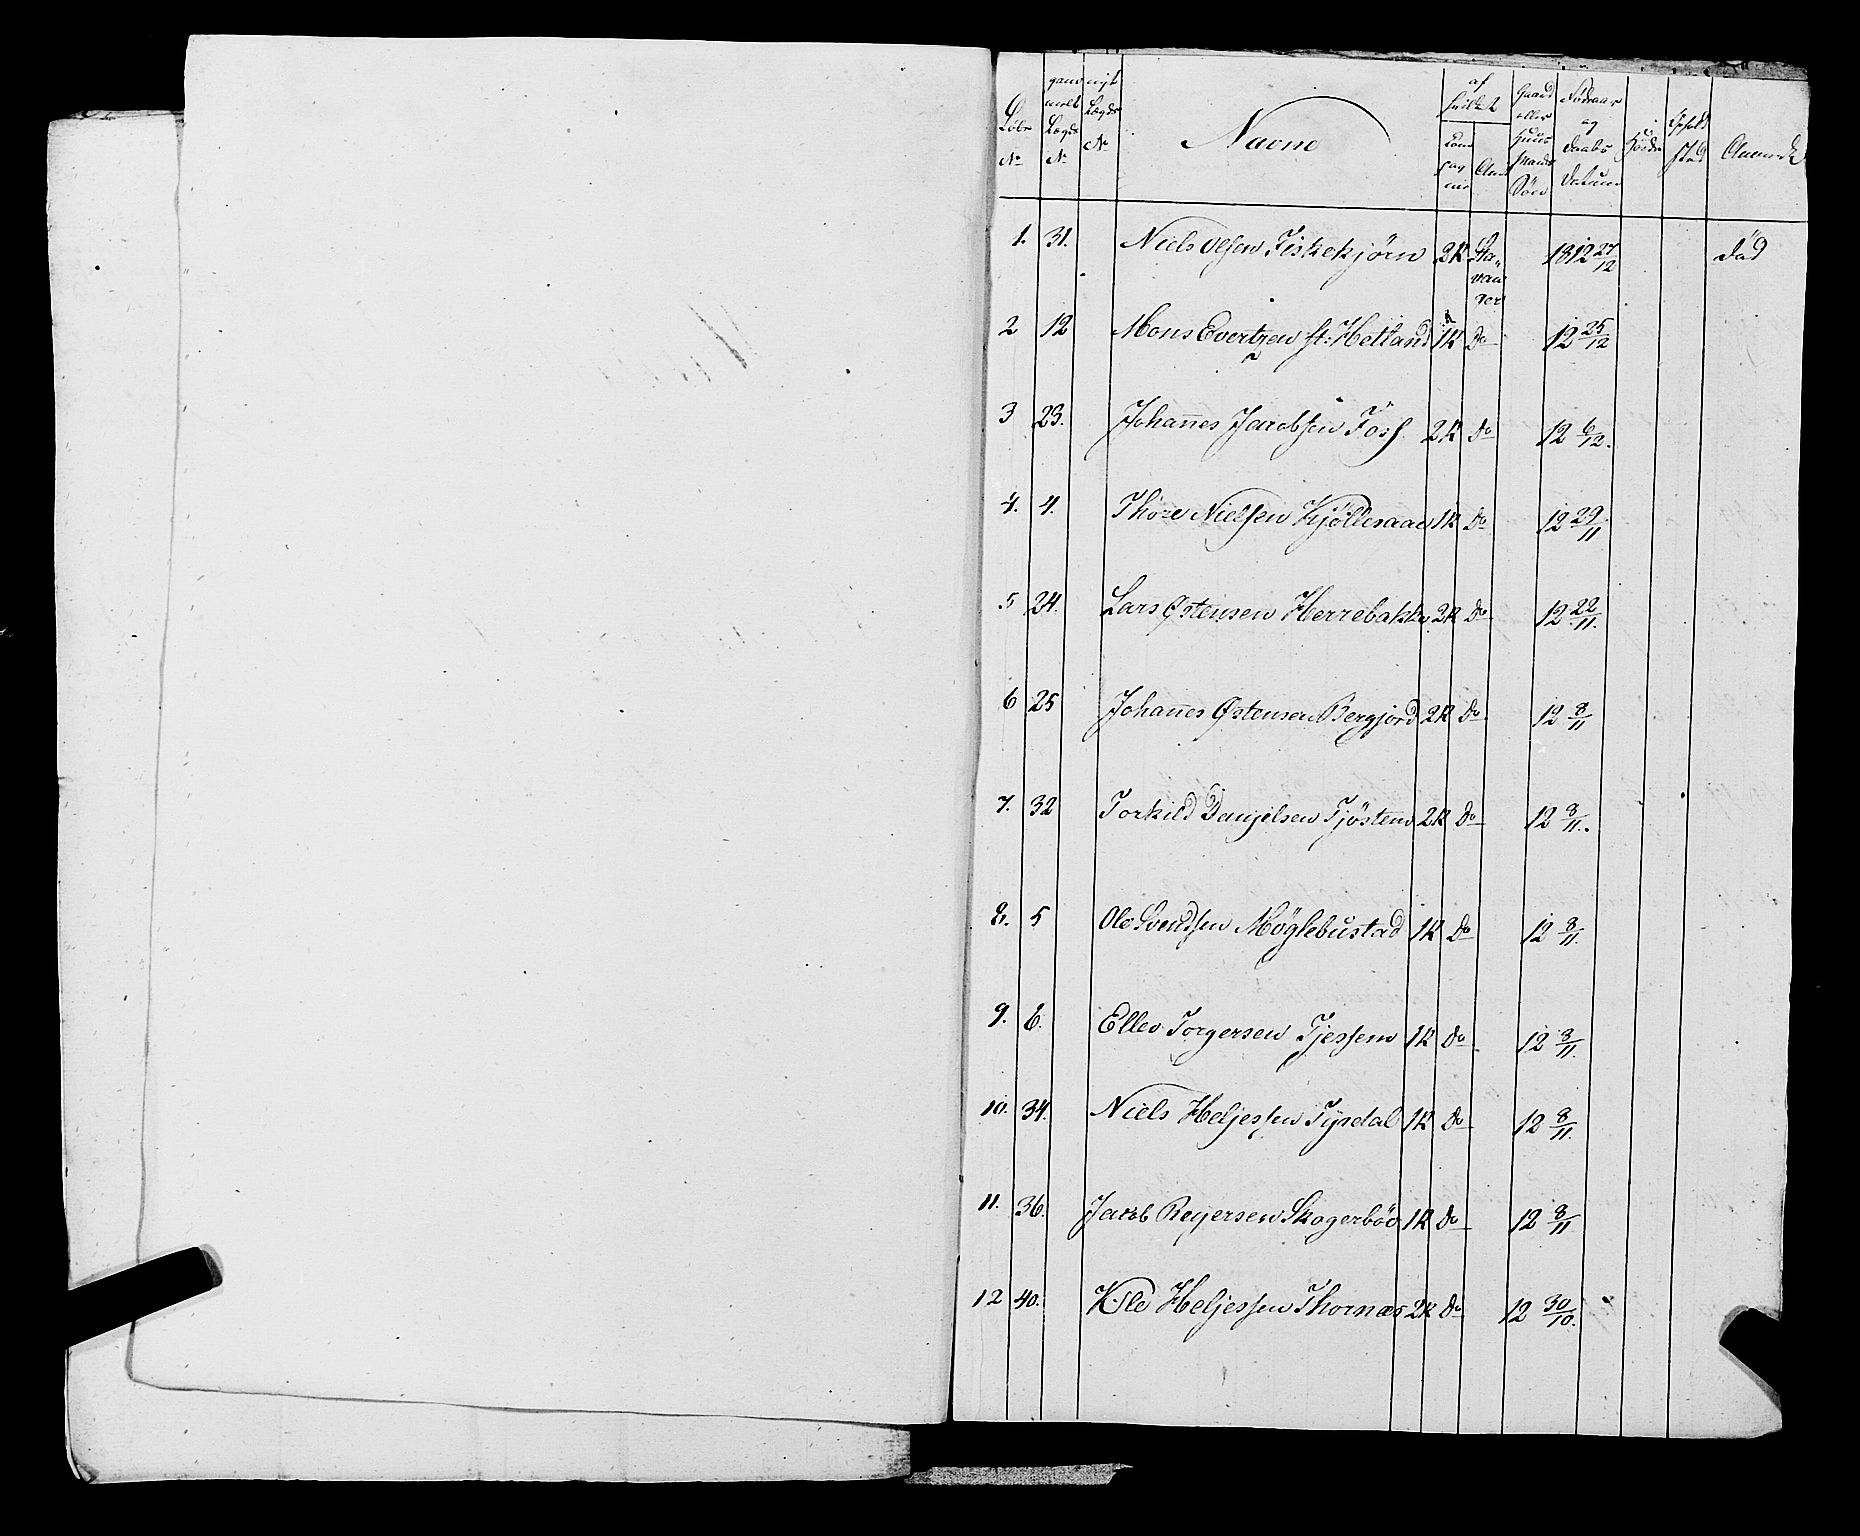 Löbe No gammelt Lægds No nyt Lægds No Navne af hvilket Compagnie Amt Gaard eller Huus mands Sön Födsaar og Daabs Datum Höide Opholds sted Anmærk
1. 31. Niels Olsen Fiskekjörn 2K Sta-vanger 1812 27/12 död
2 12 Mons Evertzen st: Hetland 1K Do 12 25/12
3 23. Johan̄es Jacobsen Foss 2K Do 12 6/12.
4. 4. Thore Nielsen Kjölleraae 1K Do 12 29/11
5 24. Lars Østensen Herrebakke 2K Do 12 22/11.
6 25 Johan̄es Østensen Bergjord 2K Do 12 8/11
7. 32 Torkild Danjelsen Tjöstem 2K Do 12 8/11.
8. 5 Ole Svendsen Møglebustad 1K Do 12 8/11.
9. 6. Ellev Torgersen Tjessem 1K Do 12 8/11.
10. 34. Niels Heljessen Tysdal 1K Do 12 8/11.
11. 36. Jacob Reyersen Skogerböe 1K Do 12 8/11
12 40. Heljessen Thornæs 2K Do 12 30/10.